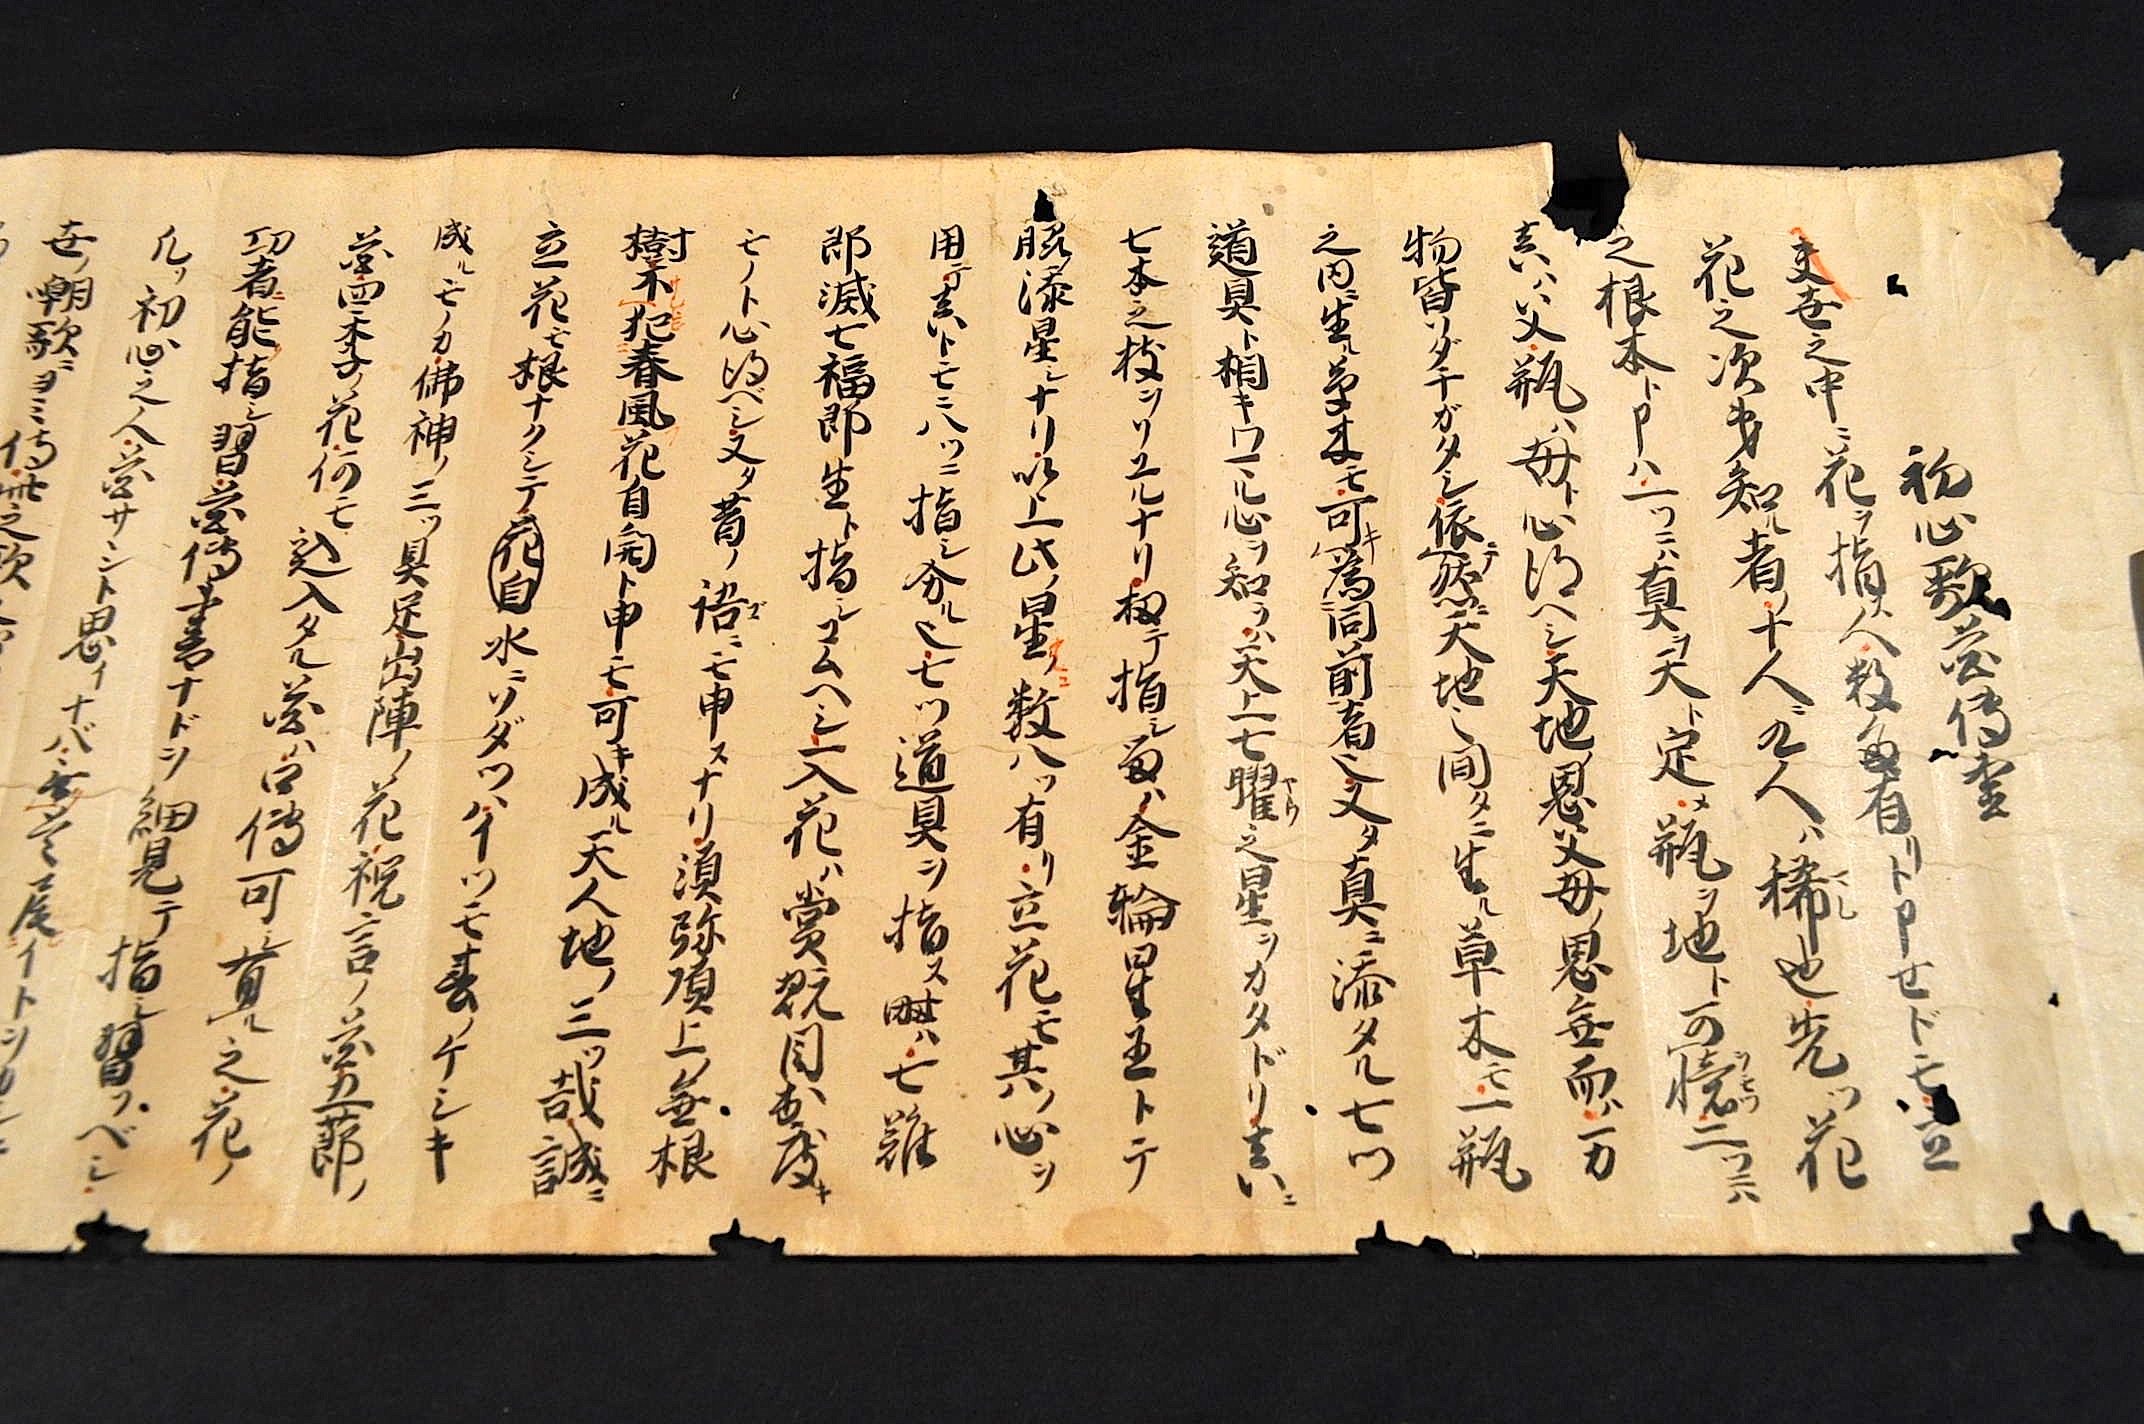 初心歌花傳書
夫世之中ニ花ヲ指ス人数多有リト申セドモ立
花之次第知ル者ノ十人ニ九人ハ稀也先ツ花
之根本ト申ハ一ツニハ真ヲ天ト定メ瓶ヲ地ト可憶二ツニハ
真ハ父瓶ハ母ト心得ヘシ天地ノ恩父母ノ恩無而ハ万
物皆ソダチガタシ依然ニ天地之間タニ生ル草木モ一瓶
之内ニ生ル草木モ可キ為同前者也又タ真ニ添タル七ツ
道具ト相キワマル心ヲ知ラハ天上七曜之星ヲカタドリ真ニ
七本之枝ヲソエルナリ扨テ指シ留ハ金輪星王トテ
脇添星ナリ以上此ノ星ノ数八ツ有リ立花モ其ノ心ヲ
用テ真トモニ八ツニ指シ分ル也七ツ道具ヲ指ス時ハ七難
即滅七福即生ト指シコムヘシ入花ハ賞翫目出度キ
モノト心得ベシ又タ昔ノ語ニモ申スナリ須弥頂上ノ無根
樹不犯春風花自開ト申モ可キ成ル天人地ノ三ツ哉誠ニ
立花モ根ナクシテ花自水ニソダツハイツモ春ノケシキ
成ルモノカ佛神ノ三ツ具足出陣ノ花祝言ノ花五節ノ
花四季ノ花何モ込入タル花ハ口傳可シ有ル之花ノ
功者ニ能ク指シ習花傳書ナドヲ細見テ指シ習フベシ
凡ソ初心之人花サシト思イナバ
世ノ嘲歌ニヨミ傳